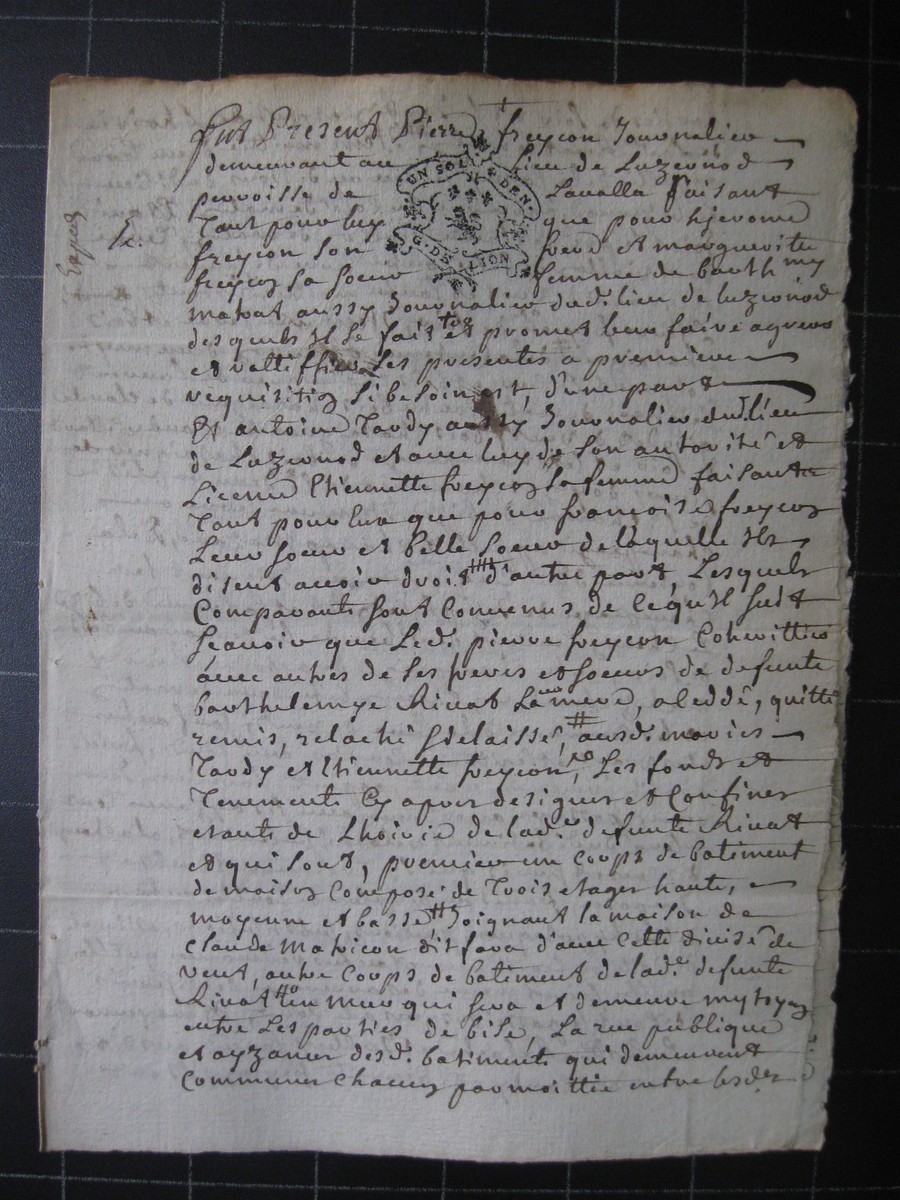 Fut Present Pierre freycon Journalier
demeurant au lieu de Luzernod
parroisse de Lavalla faisant
tant pour luy que pour hjerome
freycon son frere et marguerite
freycon sa soeur femme de barthmy
matrat aussy Journalier dud. lieu de luzernod
desquels Il se fait et promet leur faire agreer
et rattiffier Les presentes a premiere
requisition si besoin est, d'une part
Et antoine Tardy aussy Journalier dud. lieu
de Luzernod et avec luy de son autorité et
Licence Etiennette freycon sa femme faisants
Tant pour eux que pour francoise freycon
Leur soeur et belle soeur de laquelle Ils
disent avoir droit d'autre part, Lesquels
Comparants sont Convenus de ce qu'il suit
scavoir que Led. pierre freycon Coheritier
avec autres de ses freres et soeurs de defunte
barthelemye Rivat La mere, a ceddé, quitté
remis, relaché & delaissé, ausd. maries
Tardy et Etiennette freycon, Les fonds et
Tenements Cy apres designes et Confines
etants de Lhoirie de lad. defunte Rivat
et qui sont, premier un Corps de batiment
de maison Composé de Trois etages haute,
moyenne et basse Joignant la maison de
Claude matricon dit fara d'avec Cette divisé de
vent, autre Corps de batiment de lad. defunte
Rivat un mur qui sera et demeure mytoyen
entre Les parties de bise, La rue publique
et ayzances desd. batiments qui demeurent
Communes Chacun par moittie entre lesd.
UN SOL 4 DEN
G. DE LION